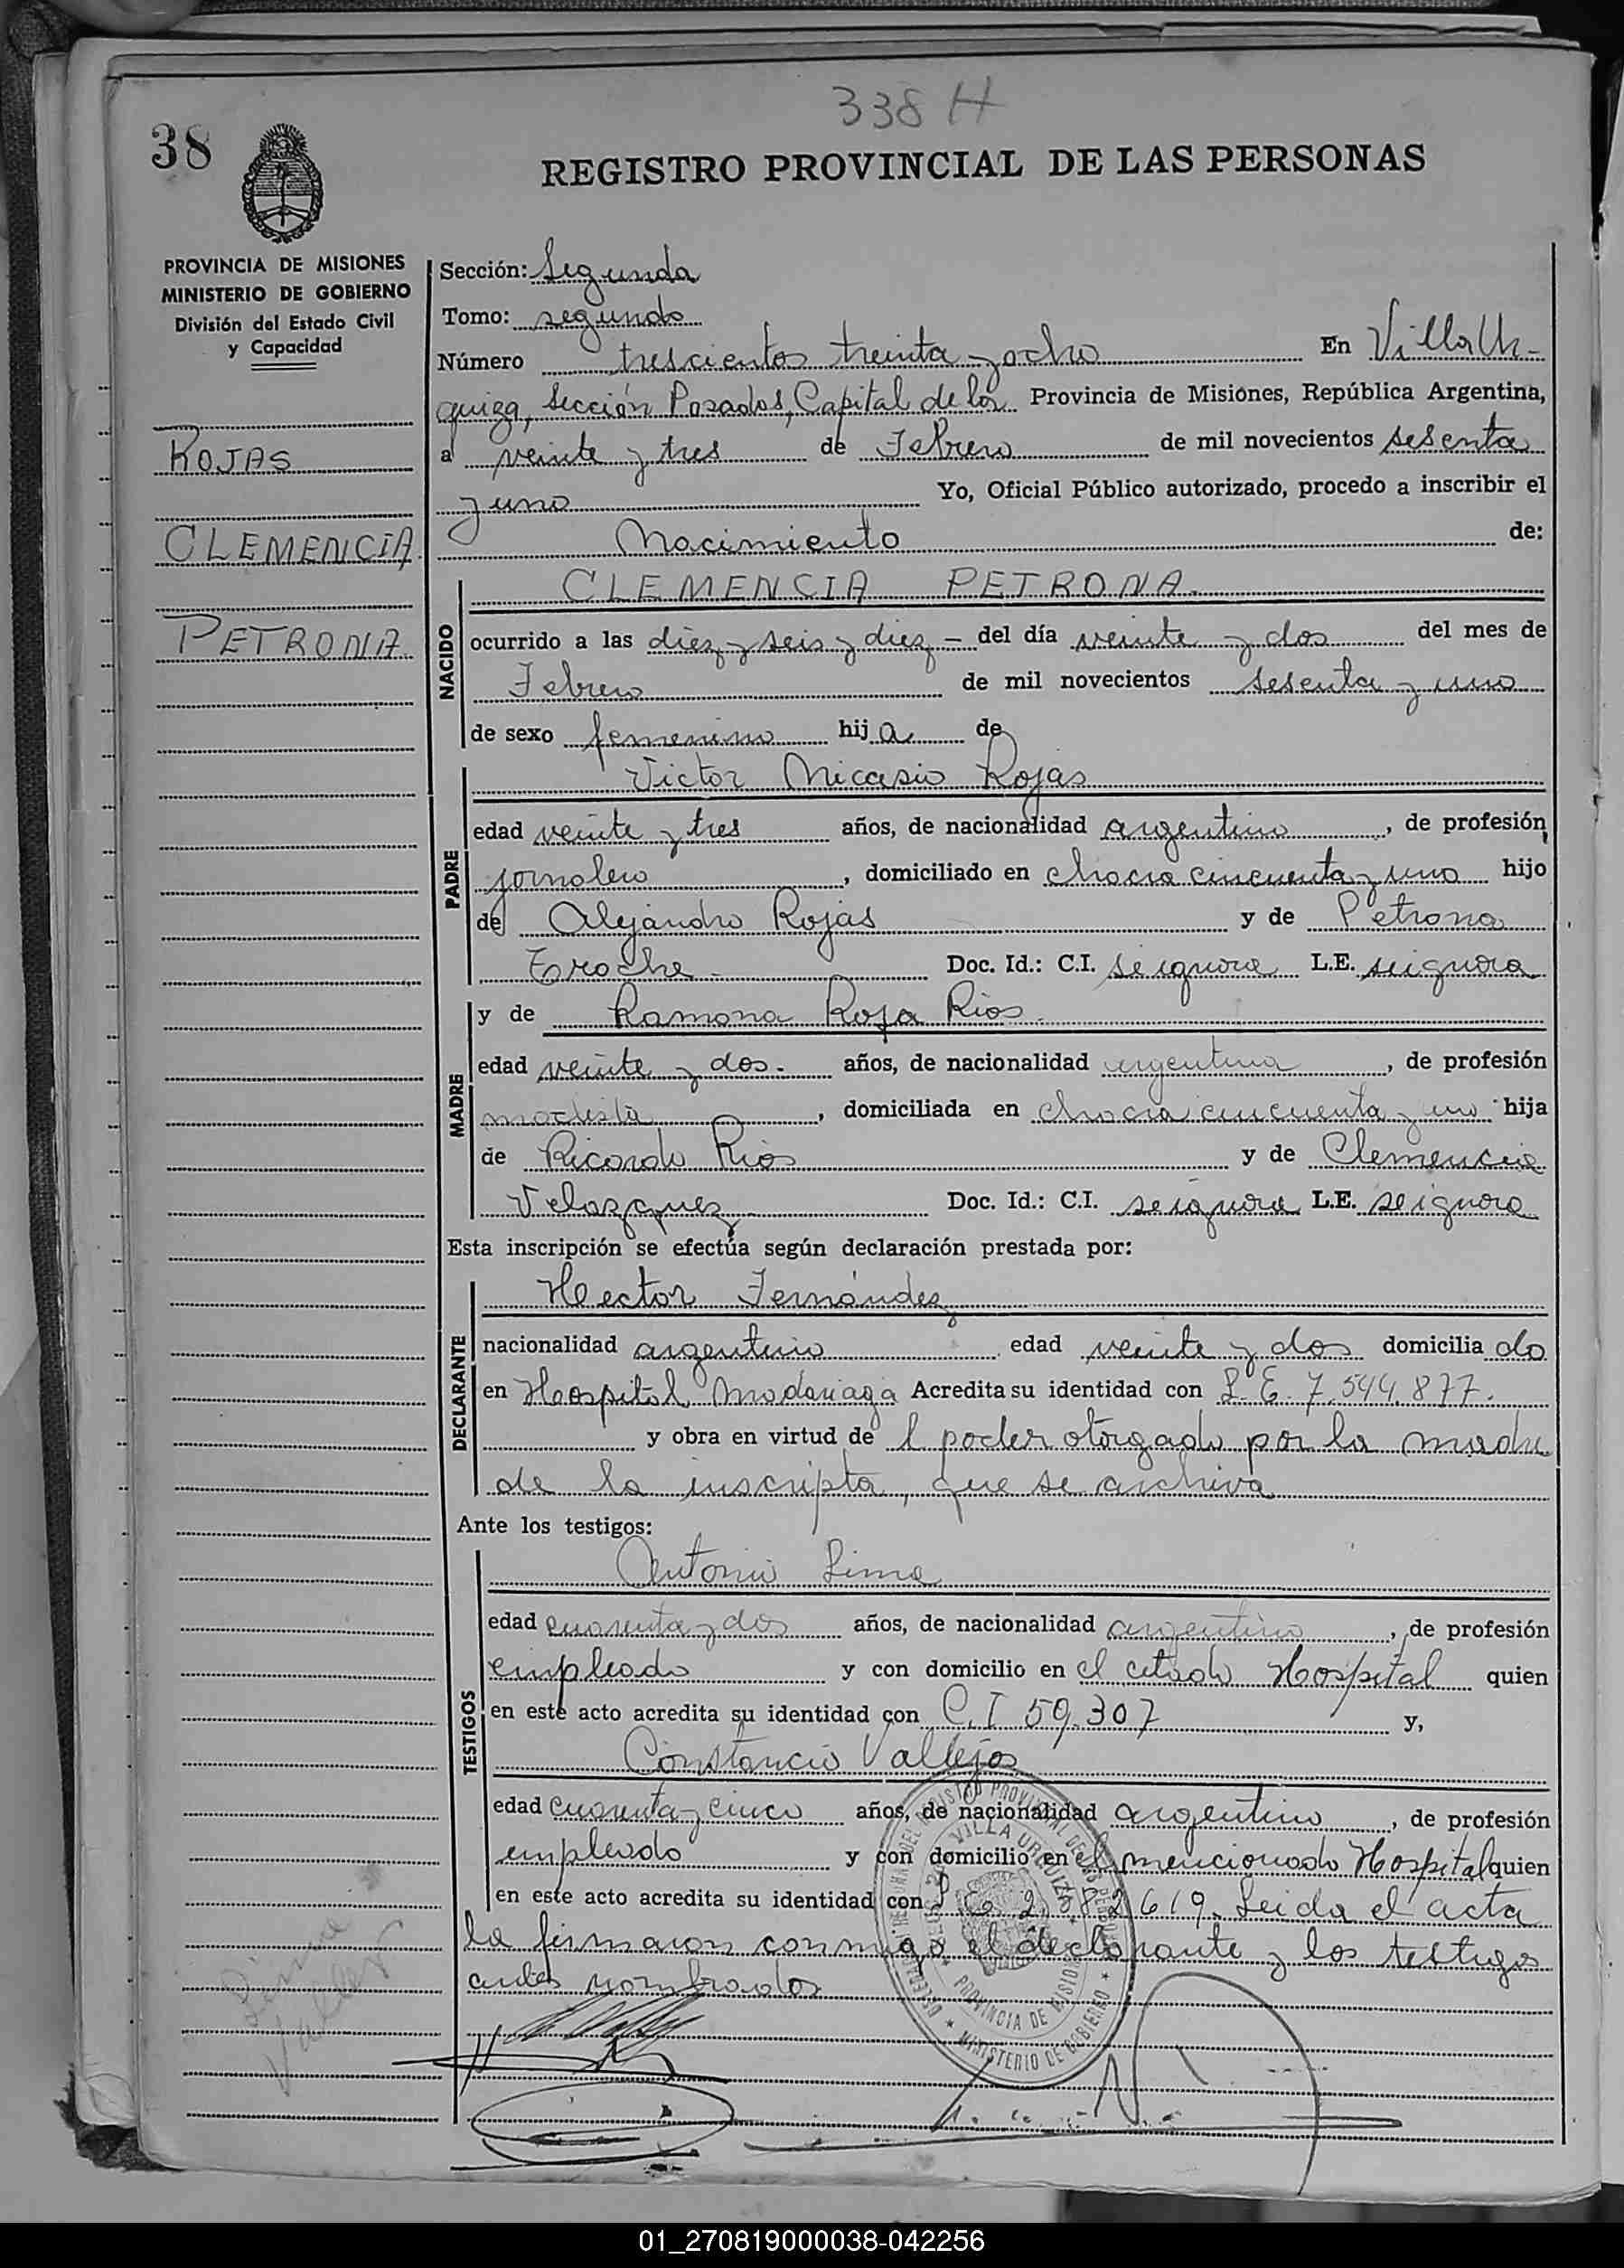 338 H
38
REGISTRO PROVINCIAL DE LAS PERSONAS
PROVINCIA DE MISIONES
MINISTERIO DE GOBIERNO
División del Estado Civil
y Capacidad
ROJAS
CLEMENCIA
PETRONA
Sección: Segunda
Tomo: segundo
Número trescientos treinta y ocho En Villa Ur-
quiza, Sección Posadas, Capital de la Provincia de Misiones, República Argentina,
a veinte y tres de Febrero de mil novecientos sesenta
y uno Yo, Oficial Público autorizado, procedo a inscribir el
Nacimiento de:
CLEMENCIA PETRONA
NACIDO
ocurrido a las diez y seis y diez - del día veinte y dos del mes de
Febrero de mil novecientos sesenta y uno
de sexo femenino hija de
Victor Nicasio Rojas
PADRE
edad veinte y tres años, de nacionalidad argentino, de profesión
jornalero, domiciliado en chacra cincuenta y uno hijo
de Alejandro Rojas y de Petrona
Doc. Id.: C.I. se ignora L.E. se ignora
y de Ramona Rosa Rios
MADRE
edad veinte y dos. años, de nacionalidad argentina, de profesión
modista, domiciliada en chacra cincuenta y uno hija
de Ricardo Rios y de Clemencia
Velazquez Doc. Id.: C.I. se ignora L.E. se ignora
Esta inscripción se efectúa según declaración prestada por:
Hector Fernández
DECLARANTE
nacionalidad argentino edad veinte y dos domiciliado
en Hospital Madariaga Acredita su identidad con L.E. 7.544.877.
y obra en virtud de l poder otorgado por la madre
de la inscripta, que se archiva
Ante los testigos:
Antonio Lima
TESTIGOS
edad cuarenta y dos años, de nacionalidad argentino, de profesión
empleado y con domicilio en el citado Hospital quien
en este acto acredita su identidad con C.I 59.307 y,
Constancio Vallejos
edad cuarenta y cinco años, de nacionalidad argentino, de profesión
empleado y con domicilio en el mencionado Hospital quien
en este acto acredita su identidad con L.E. 2.582619. Leida el acta
la firmaron conmigo el declarante y los testigos
antes nombrados
VILLA URQUIZA
PROVINCIA DE MISIONES
MINISTERIO DE GOBIERNO
01_270819000038-042256